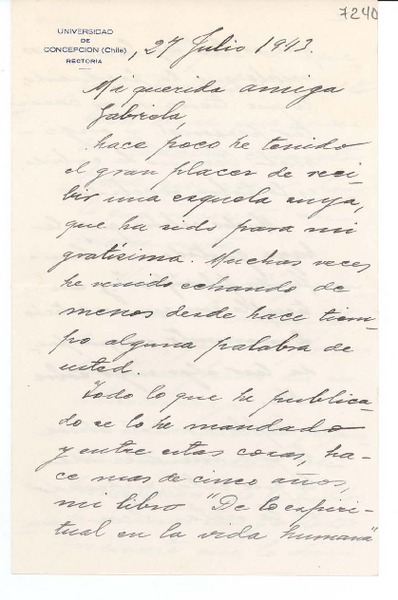 7240
UNIVERSIDAD
DE
CONCEPCION (Chile)
RECTORIA
, 27 Julio 1943.
Mi querida amiga
Gabriela,
hace poco he tenido
el gran placer de reci-
bir una esquela suya,
que ha sido para mi
gratísima. Muchas veces
he venido echando de
menos desde hace tiem-
po alguna palabra de
usted.
Todo lo que he publica-
do se lo he mandado
y entre estas cosas, ha-
ce mas de cinco años,
mi libro "De lo espiri-
tual en la vida humana"